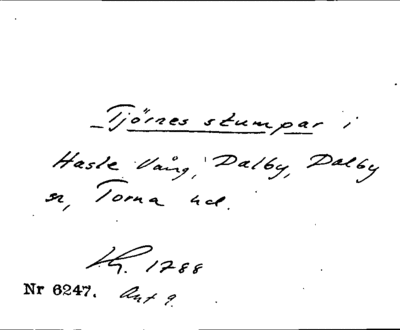 Tjörnes stumpar i
Hasle Vång, Dalby, Dalby
sn, Torna hd.
Kh. 1788
Nr 6247. Ant 9.